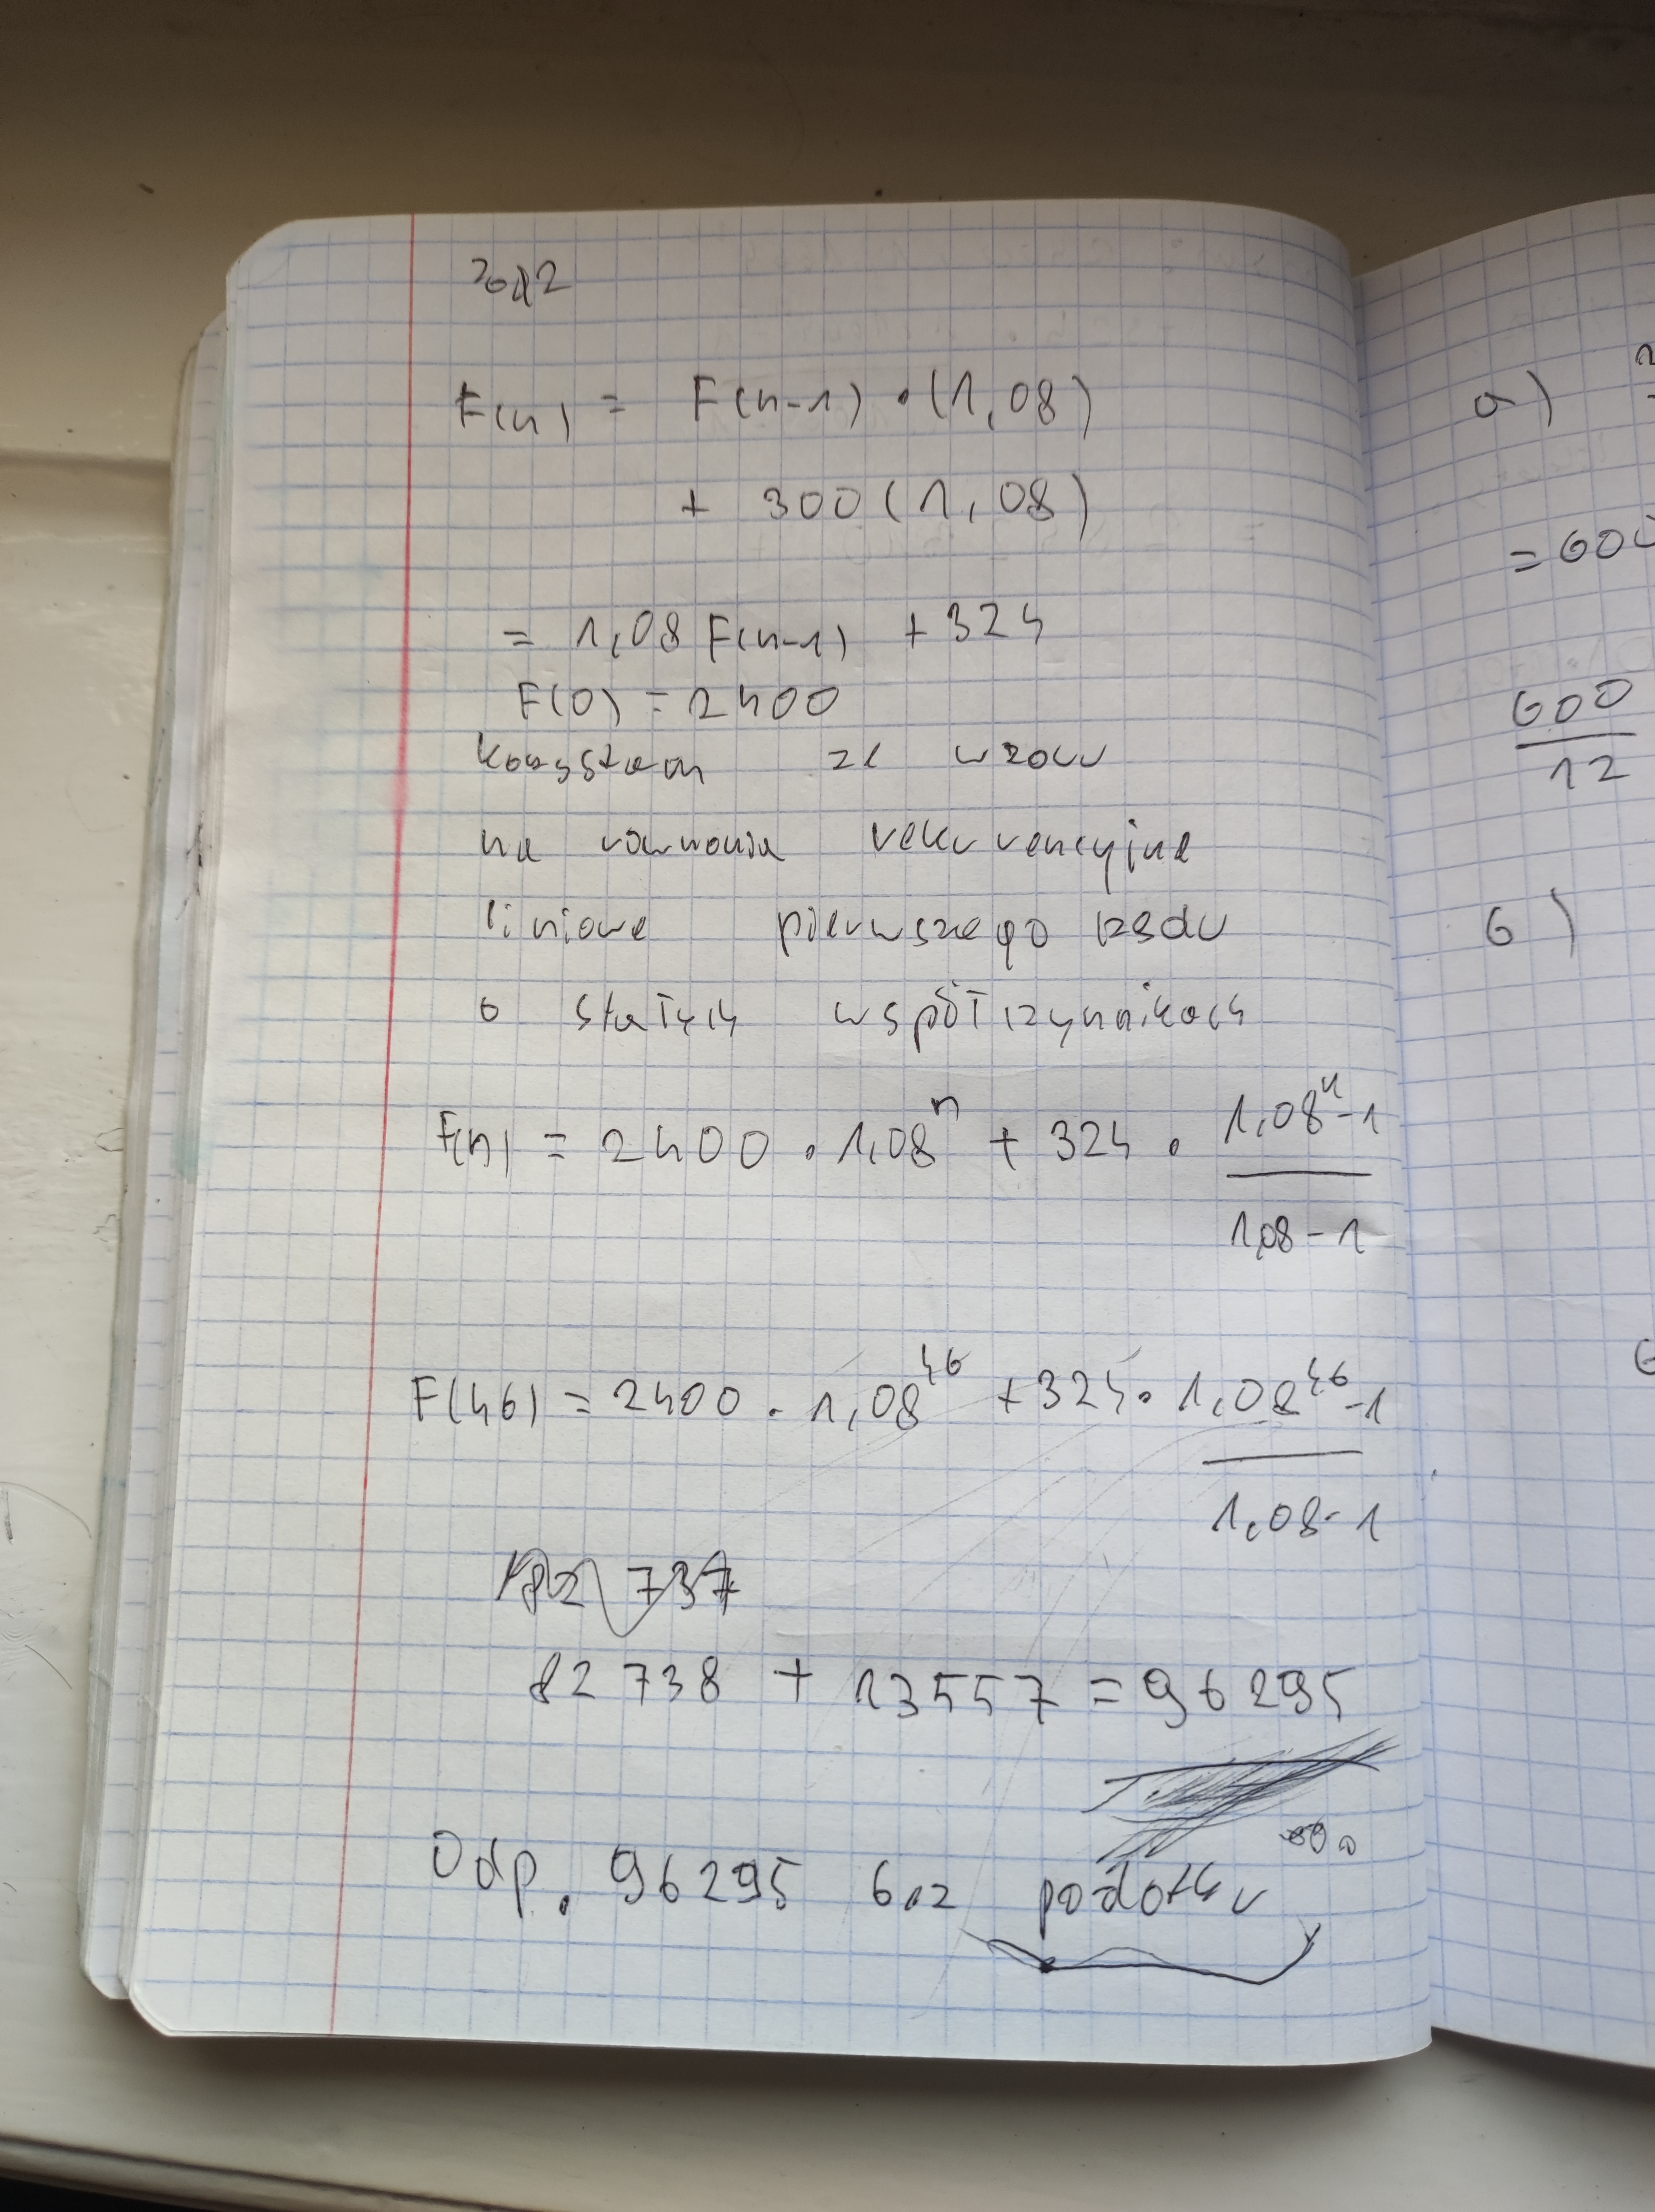 zad 2
F(n) = F(n-1) • (1,08)
+ 300 (1,08)
= 1,08 F(n-1) + 324
F(0) = 2400
korzystam ze wzoru
na rownania rekurencyjne
liniowe pierwszego rzedu
o stałych współczynnikach
F(n) = 2400 • 1,08^n + 324 • 1,08^n - 1
1,08 - 1
F(46) = 2400 • 1,08^46 + 324 • 1,08^46 - 1
1,08 - 1
82 738 + 13557 = 96 295
Odp. 96295 bez podatku
a)
= 600
600
12
b)